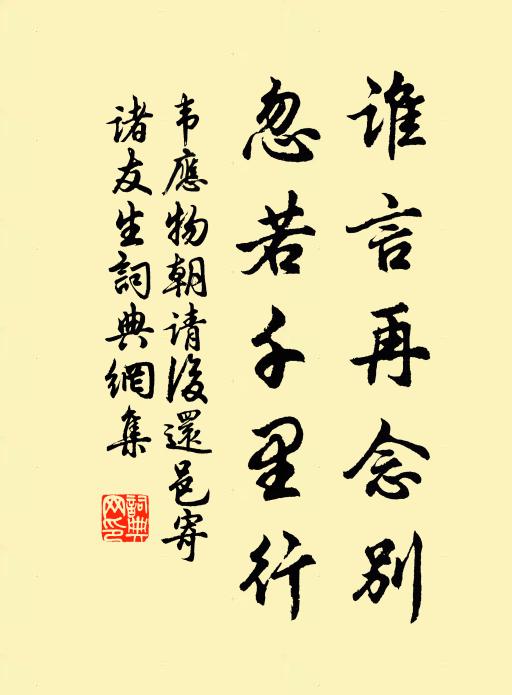 谁言再念别
忽若千里行
韦應物朝请後還邑寄
诸友生詞典網集
詞典
网印